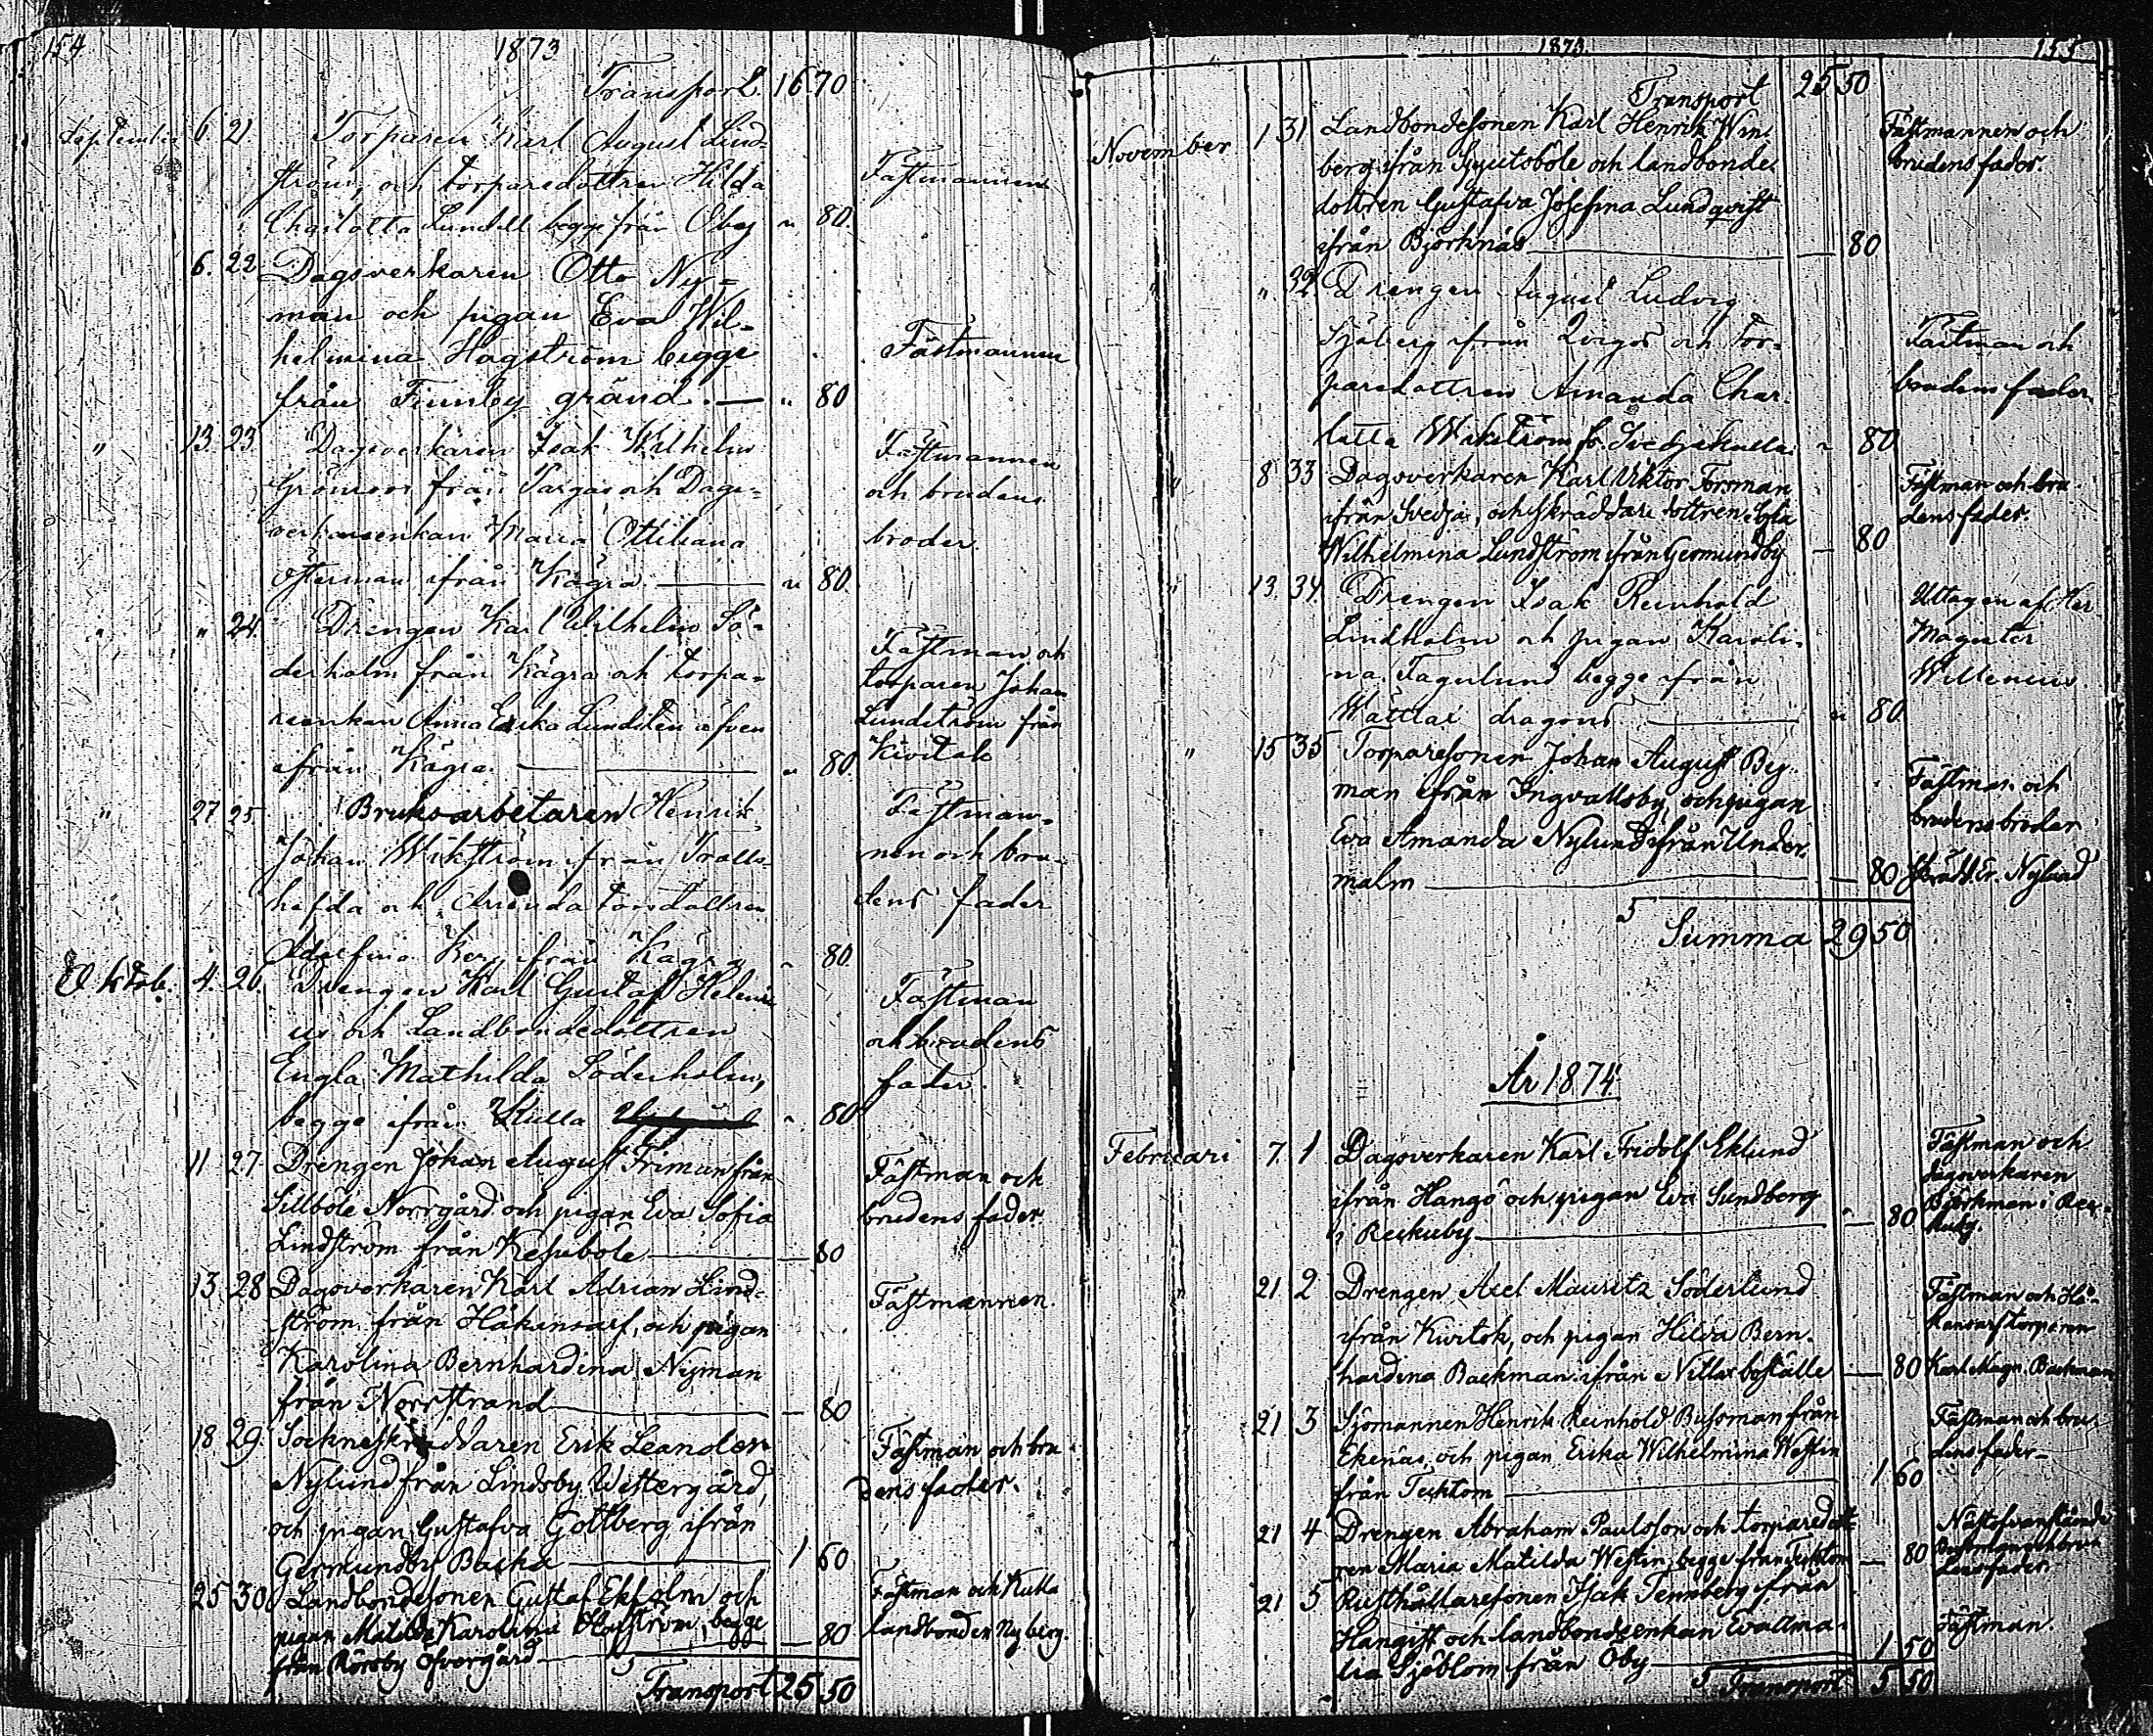 154
1873
Transport 16 70
September 6 21. Torparen Karl August Lind-
ström, och torparedottren Hilda
Charlotta Lundell begge från Öby " 80.
Fästmannen
6. 22. Dagsverkaren Otto Ny=
man och pigan Eva Wil-
helmina Hagström begge
från Finnby gränd. — " 80
Fästmannen
" 13. 23. Dagsverkaren Isak Wilhelm
Grönroos från Pargas och Dags=
verkareenkan Maria Ottiliana
Österman ifrån Kägra — " 80.
Fästmannen
och brudens
broder.
" " 24. Drengen Karl Wilhelm Sö-
derholm från Kägra och torpa-
reenkan Anna Erika Lundsten äfven
ifrån Kägra — " 80.
Fästman och
torparen Johan
Lundström från
Kivitok
" 27 25. Bruksarbetaren Henrik
Johan Wikström ifrån Tralls-
hefda och Arrendatorsdottren
Adolfina ifrån Kägra " 80.
Fästman-
nen och bru-
dens fader
Oktob. 4. 26. Drengen Karl Gustaf Heleni
us och Landbondedottren
Engla Mathilda Söderholm,
begge ifrån Kulla " 80
Fästman
och brudens
fader.
11 27. Drengen Johan August Friman från
Sillböle Norrgård och pigan Eva Sofia
Lindström från Kesuböle — 80
Fästman och
brudens fader
13. 28 Dagsverkaren Karl Adrian Lind-
ström från Håkansarf, och pigan
Karolina Bernhardina Nyman
från Norrstrand — 80
Fästmannen.
18 29. Sockneskräddaren Erik Leander
Nylund från Lindsby Westergård,
och pigan Gustafva Gottberg ifrån
Germundby Backa — 1 60
Fästman och bru-
dens fader.
25 30. Landbondesonen Gustaf Ekholm och
pigan Matilda Karolina Hafström, begge
från Rörsby Öfvergård — 80
Fästman och Kulla
landbonden Nyberg.
Transport 25 50
1873.
155
Transport 25 50
November 1 31 Landbondesonen Karl Henrik Win-
berg ifrån och landbonde-
dottren Gustafva Josefina Lundqvist
ifrån Björknäs — 80
Fästmannen och
brudens fader.
" " 32 Drengen August Ludvig
Sjöberg ifrån och tor-
paredottren Amanda Char-
lotta Wikström fr. Svedjekulla " 80
Fästman och
brudens fader.
" 8 33 Dagsverkaren Karl Viktor Forsman
ifrån Svedja, och skräddare dottren
Wilhelmina Lundström ifrån Germundby — 80
Fästman och bru-
dens fader.
" 13. 34. Drengen Isak Reinhold
Lindholm och pigan Karoli-
na Fagerlund begge ifrån
Wättlax dragons — " 80.
Uttagen af Her
Magister
Willenius
" 15 35 Torparesonen Johan August By-
man ifrån Ingvallsby, och pigan
Eva Amanda Nylund ifrån Under-
malm — 80
Fästman och
brudens broder
Skrädd. Er. Nylund
Summa 29 50
År 1874.
Februari 7. 1 Dagsverkaren Karl Fridolf Eklund
ifrån Hangö och pigan Eva Sundberg
i Reckuby — 80
Fästman och
dagsverkaren
Björkman i Rec-
kuby.
" 21 2 Drengen Axel Mauritz Söderlund
ifrån Kivitok, och pigan Hilda Bern-
hardina Backman ifrån Nitlax boställe — 80
Fästman och Hå-
kansarf torparen
Karl Magn. Backman
21 3 Sjömannen Henrik Reinhold Bussman från
Ekenäs, och pigan Erika Wilhelmina Westin
från Tecktom — 1 60
Fästman och bru-
dens fader.
21 4 Drengen Abraham Paulsson och torparedott-
ren Maria Matilda Westin, begge från Tecktom — 80
Näst ofvanstående
Bussman och bru-
dens fader.
21 5 Rusthållaresonen Isak Tennberg från
Hangist och landbondeenkan Eva Ama-
lia Sjöblom från Öby — 1 50
Fästman.
Transport 5 50